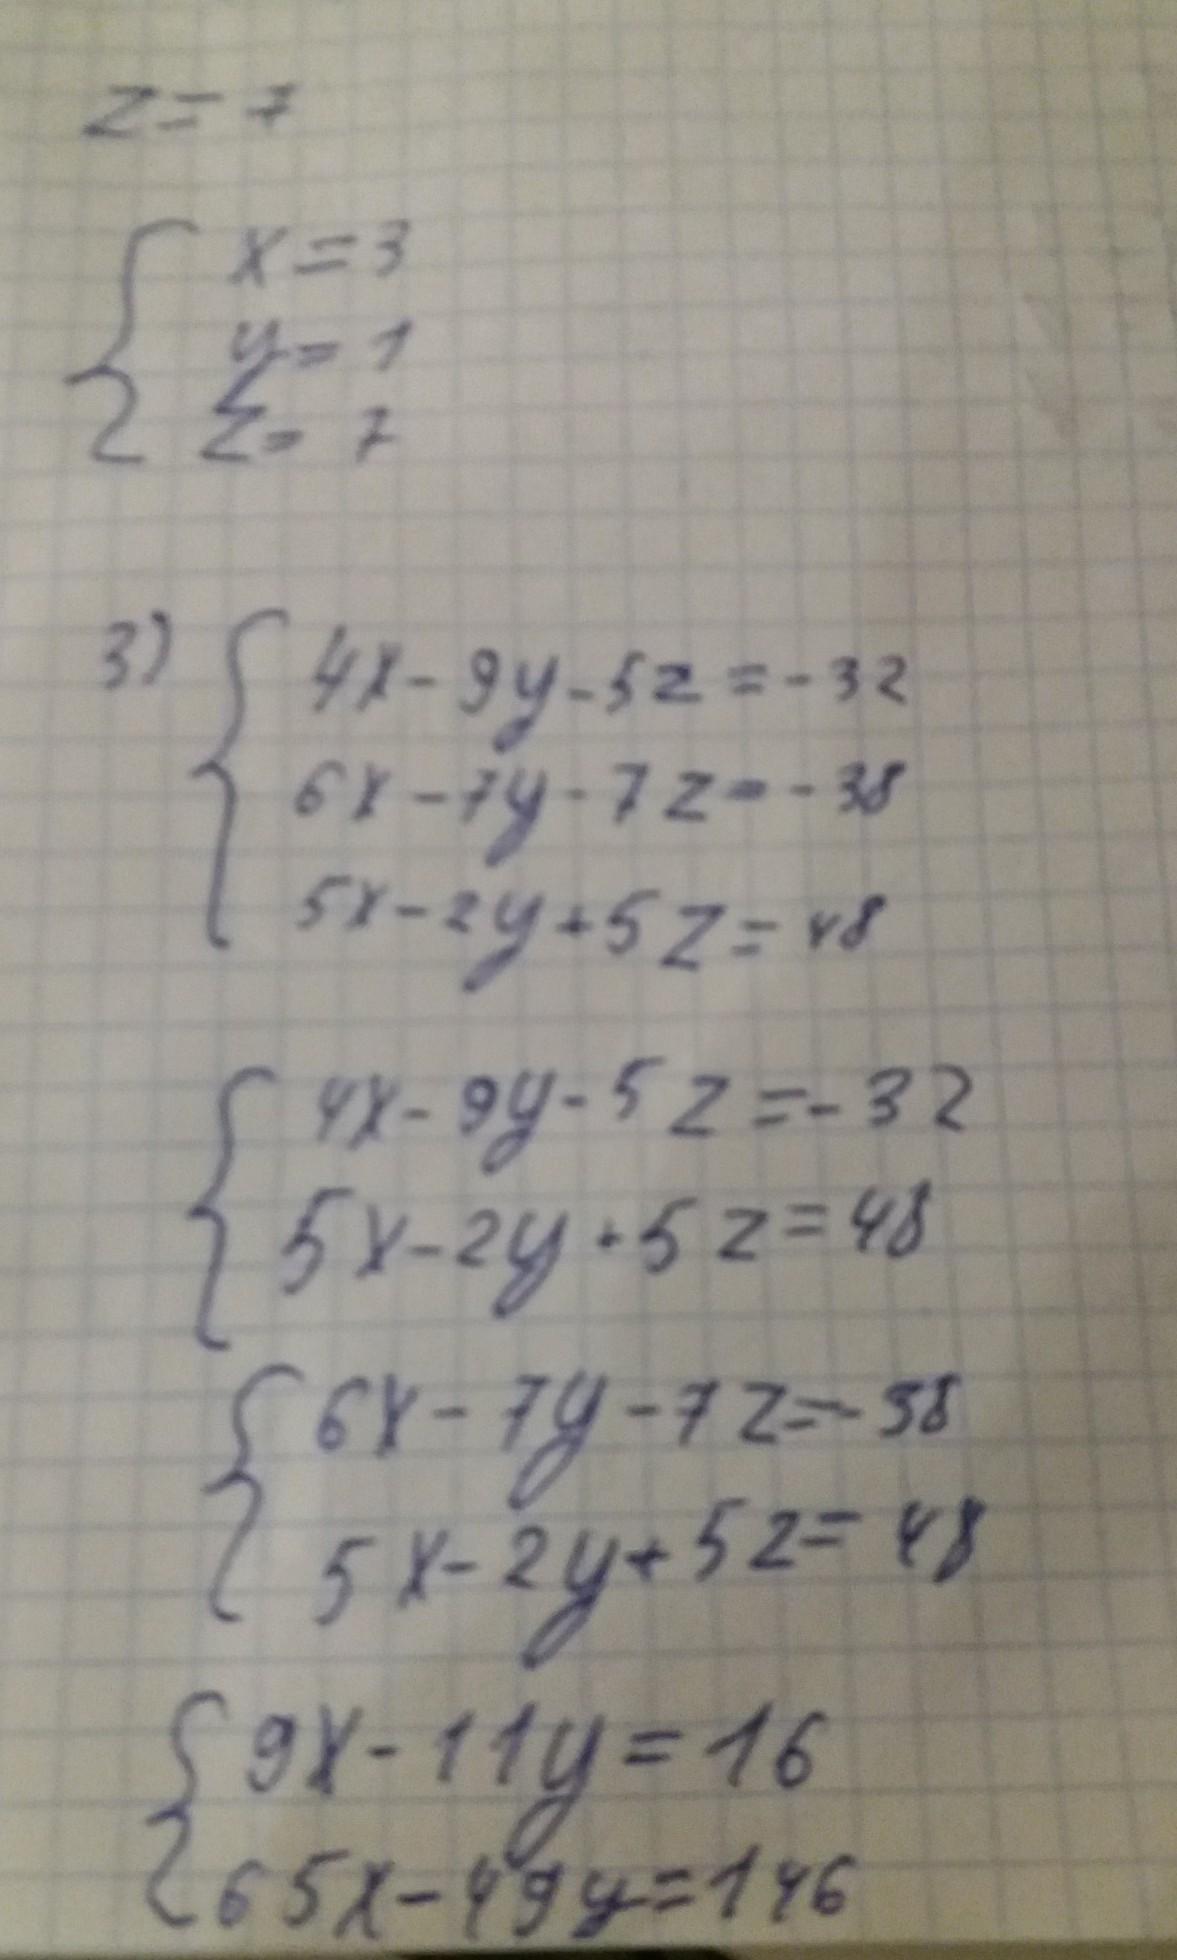 z = 7
x = 3
y = 1
z = 7
3) 4x - 9y - 5z = -32
6x - 7y - 7z = -38
5x - 2y + 5z = 48
4x - 9y - 5z = -32
5x - 2y + 5z = 48
6x - 7y - 7z = -38
5x - 2y + 5z = 48
9x - 11y = 16
65x - 49y = 146